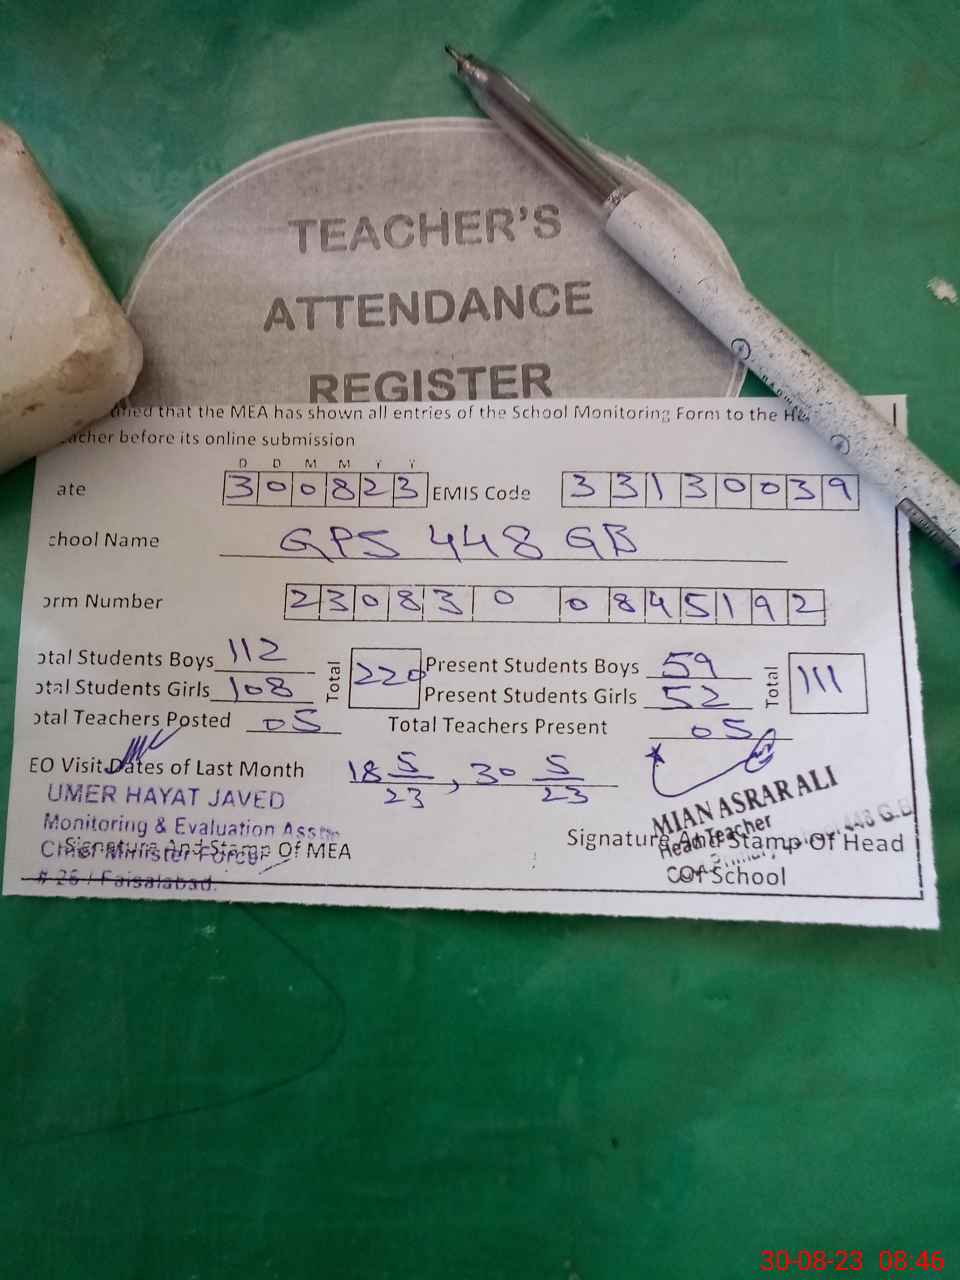 TEACHER'S
ATTENDANCE
REGISTER
that the MEA has shown all entries of the School Monitoring Form to the
acher before its online submission
D D M M Y Y
ate 300823 EMIS Code 33130039
chool Name GPS 448 GB
orm Number 2308300845192
otal Students Boys 112 Total 220 Present Students Boys 59 Total 111
otal Students Girls 108 Present Students Girls 52
otal Teachers Posted 05 Total Teachers Present 05
EO Visit Dates of Last Month 18 5/23, 30 5/23
UMER HAYAT JAVED
Monitoring & Evaluation
Signature And Stamp Of MEA
Chief Minister
# 26 / Faisalabad.
MIAN ASRAR ALI
Head Teacher
448 G.B
Signature And Stamp Of Head
Of School
30-08-23 08:46